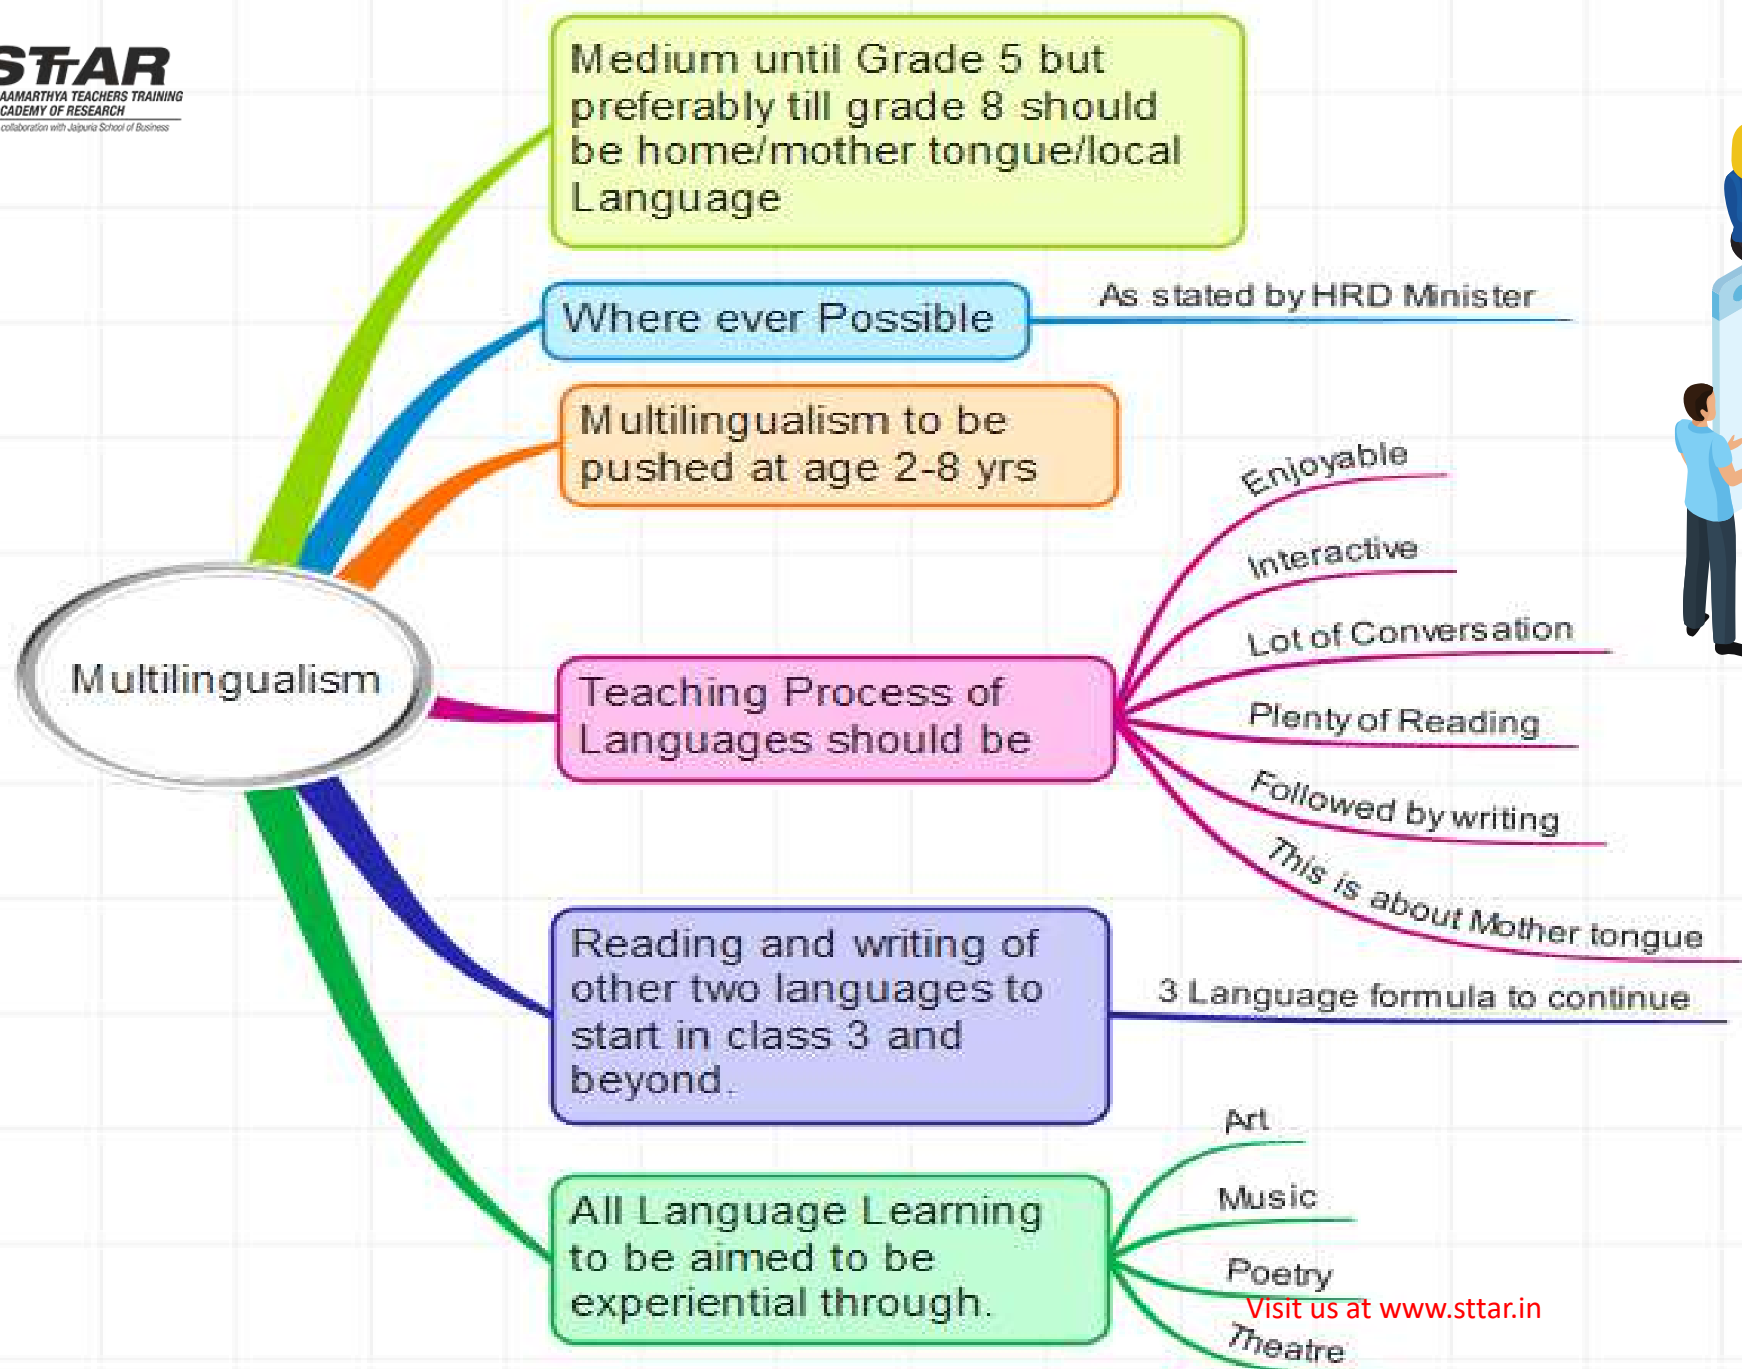 STTAR
AAMARTHYA TEACHERS TRAINING
CADEMY OF RESEARCH
collaboration with Jaipuria School of Business
Medium until Grade 5 but
preferably till grade 8 should
be home/mother tongue/local
Language
Where ever Possible
As stated by HRD Minister
Multilingualism to be
pushed at age 2-8 yrs
Multilingualism
Teaching Process of
Languages should be
Enjoyable
Interactive
Lot of Conversation
Plenty of Reading
Followed by writing
This is about Mother tongue
Reading and writing of
other two languages to
start in class 3 and
beyond.
3 Language formula to continue
All Language Learning
to be aimed to be
experiential through.
Art
Music
Poetry
Visit us at www.sttar.in
Theatre